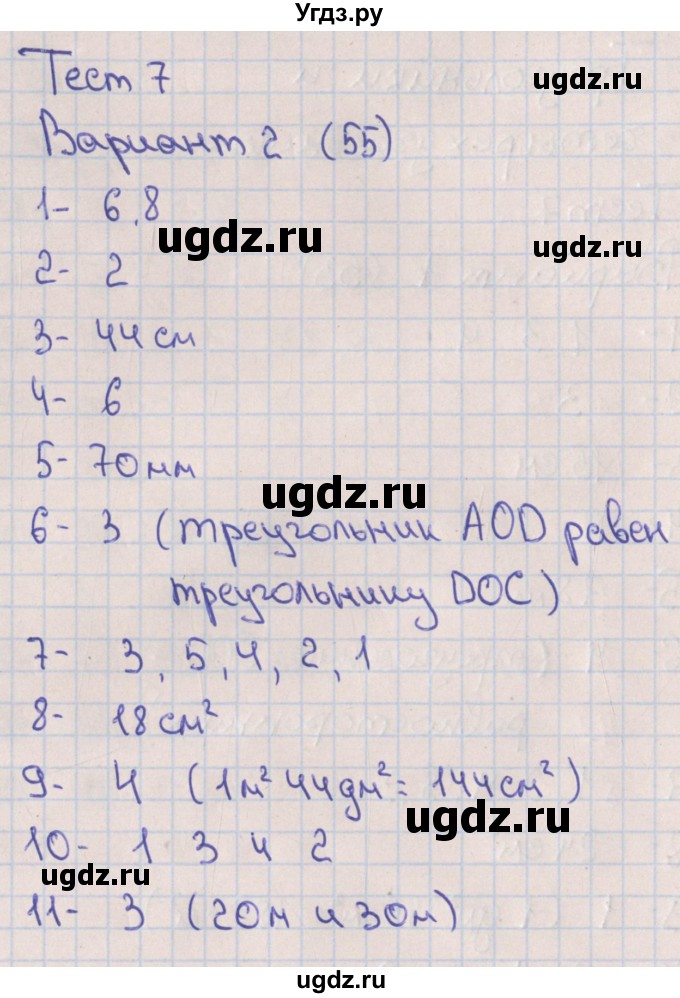 Угдз.ру
Тест 7
ugdz.ru
Вариант 2 (55)
1- 6,8
ugdz.ru
ugdz.ru
2- 2
3- 44 см
4- 6
5- 70 мм
ugdz.ru
6- 3 (треугольник AOD равен
треугольнику DOC)
7- 3, 5, 4, 2, 1
8- 18 см²
9- 4 (1м² 44дм² = 144см²)
ugdz.ru
10- 1 3 4 2
ugdz.ru
11- 3 (20м и 30м)
ugdz.ru